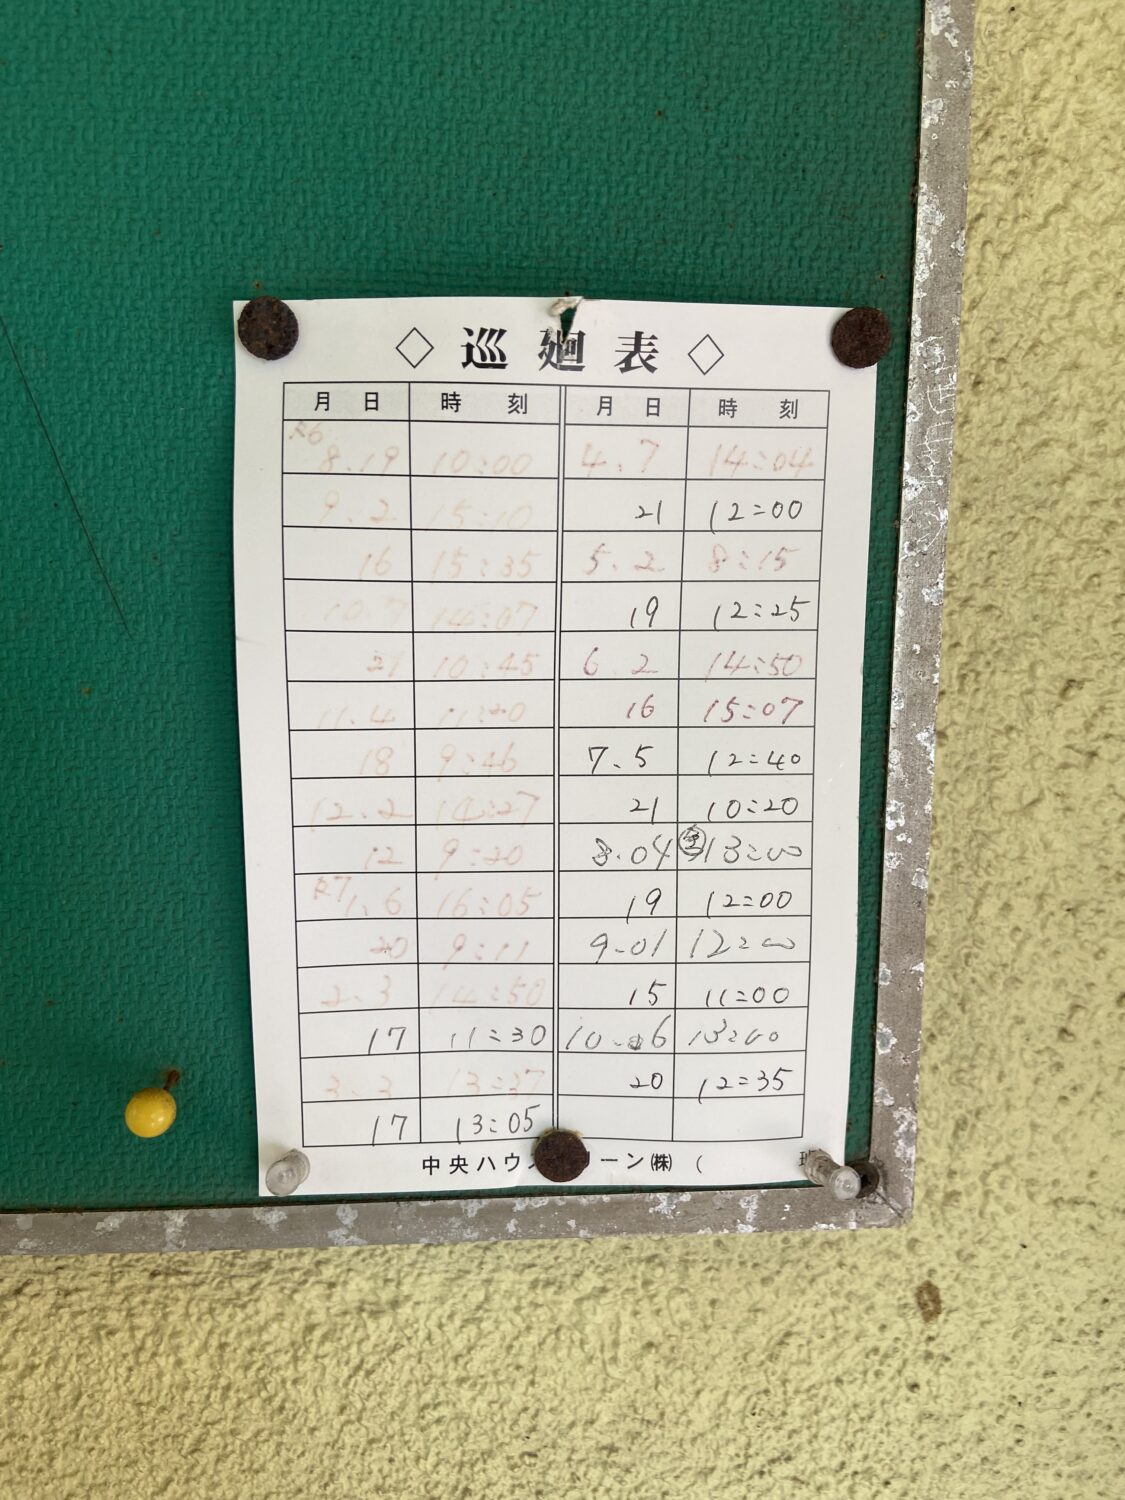 ◇ 巡廻表 ◇
月 日 時 刻 月 日 時 刻
R6 8.19 10:00 4.7 14:04
9.2 15:10 21 12:00
16 15:35 5.2 8:15
10.7 14:07 19 12:25
21 10:45 6.2 14:50
11.4 11:20 16 15:07
18 9:46 7.5 12:40
12.2 14:27 21 10:20
12 9:20 8.04 13:00
R7 1.6 16:05 19 12:00
20 9:11 9.01 12:00
2.3 14:50 15 11:00
17 11:30 10.6 13:00
3.3 13:37 20 12:35
17 13:05
中央ハウス ーン㈱ (